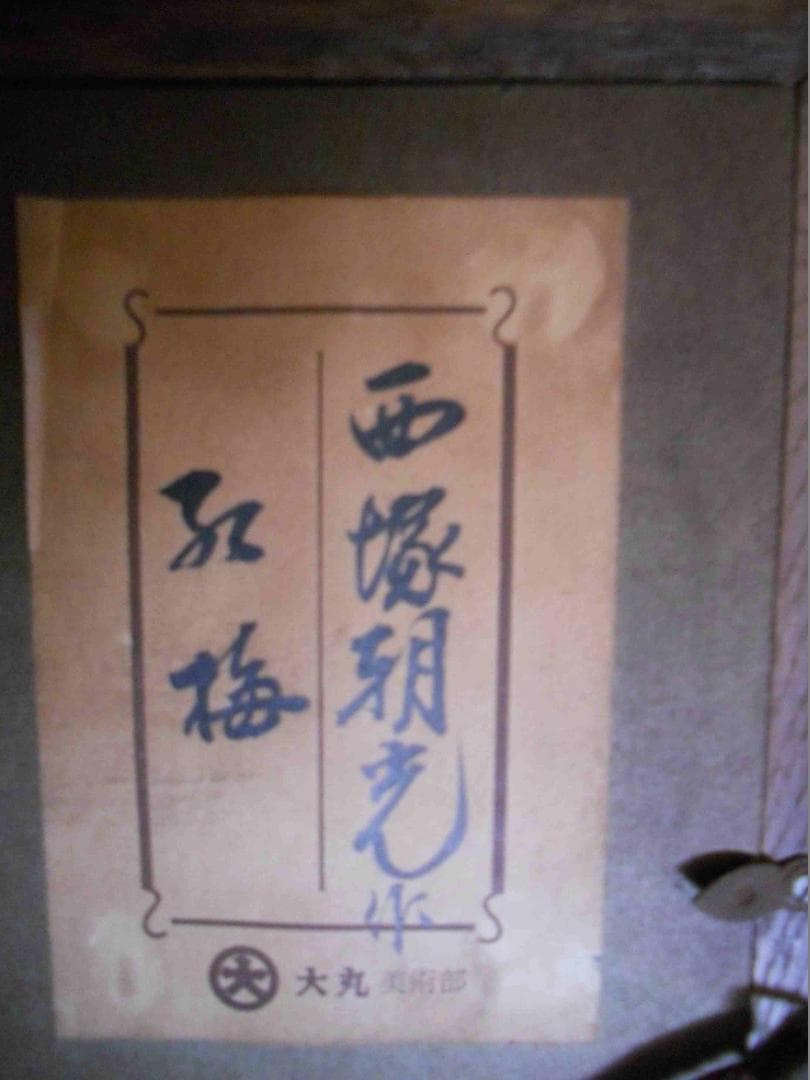 西塚朝光作
紅梅
大 大丸 美術部